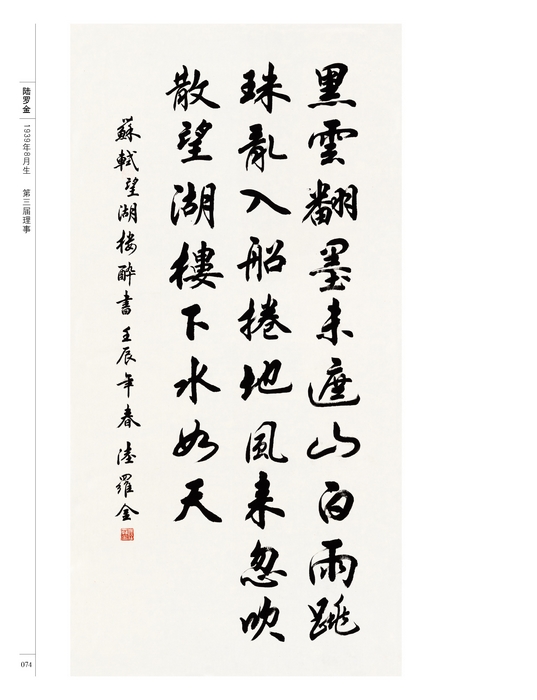 黑雲翻墨未遮山白雨跳
珠亂入船捲地風来忽吹
散望湖樓下水如天
蘇軾望湖楼醉書 壬辰年春 陸羅金
陆罗金
1939年8月生 第三届理事
074